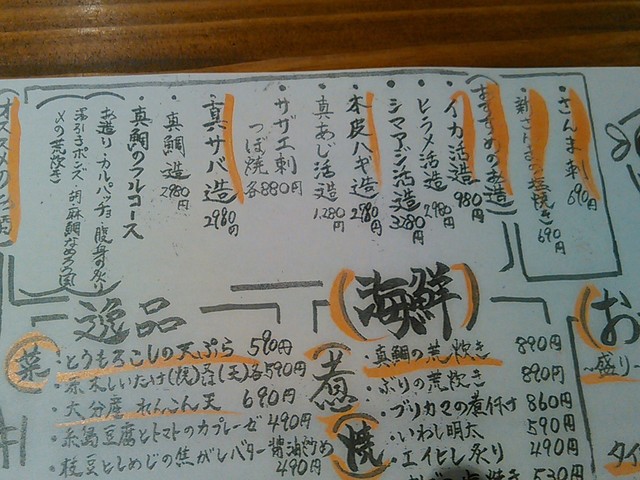 さんま刺 690円
新さんまの塩焼き 690円
おすすめのお造り
イカ活造 980円
ヒラメ活造 2,980円
シマアジ活造 3,280円
本皮ハギ造 2,980円
真あじ活造 1,280円
サザエ刺
つぼ焼 各880円
真サバ造 2,980円
真鯛造 2,980円
真鯛のフルコース
お造り カルパッチョ・腹身の炙り
湯引きポンズ 胡麻鯛なめろう
〆の荒炊き
海鮮
煮
真鯛の荒炊き 890円
ぶりの荒炊き 890円
ブリカマの煮付け 860円
焼
いわし明太 590円
エイヒレ炙り 490円
530円
逸品
菜
とうもろこしの天ぷら 590円
原木しいたけ(焼)又は(天)各590円
大分産 れんこん天 690円
糸島豆腐とトマトのカプレーゼ 490円
枝豆としめじの焦がしバター醤油炒め 490円
お
盛り
タイ